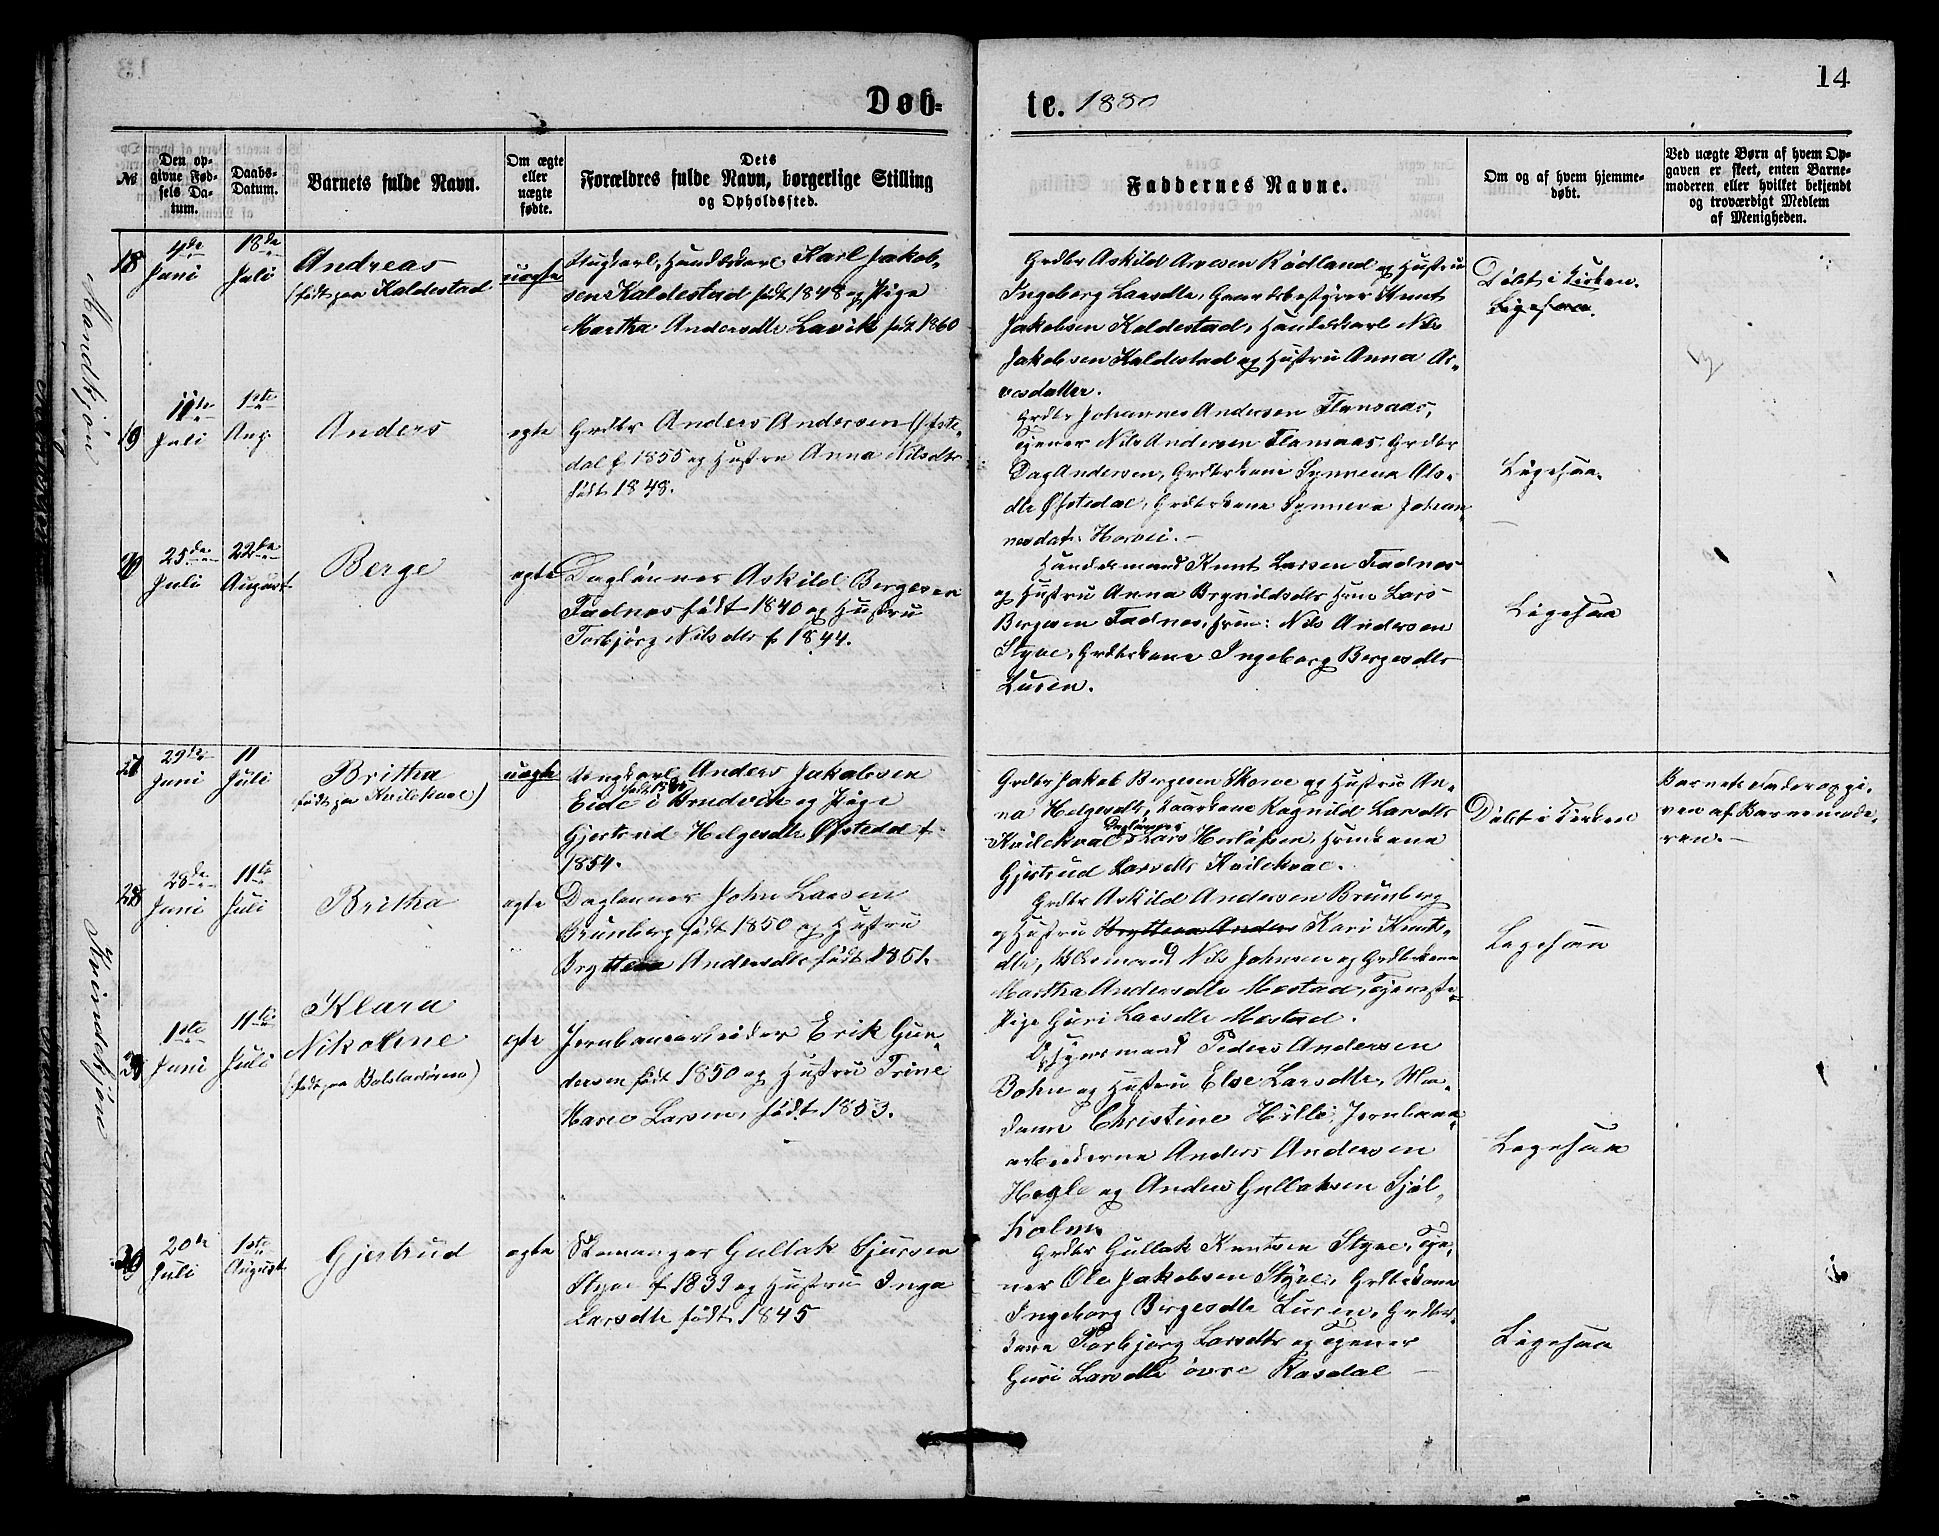 14
Døb-
te. 1880
№
Den op-
givne Fød-
sels Da-
tum.
Daabs-
Datum.
Barnets fulde Navn.
Om ægte
eller
uægte
fødte.
Dets
Forældres fulde Navn, borgerlige Stilling
og Opholdssted.
Faddernes Navne.
Om og af hvem hjemme-
døbt.
Ved uægte Børn af hvem Op-
gaven er skeet, enten Barne-
moderen eller hvilket bekjendt
og troværdigt Medlem
af Menigheden.
Mandkjøn
18
4de
Juni
18de
Juli
Andreas
(født paa Kaldestad
uægte
Ungkarl, Handelskarl Karl Jakob-
sen Kaldestad født 1848 og Pige
Martha Andersdtr Lavik født 1860
Grdbr Askild Arnesen Rødland og Hustru
Ingeborg Larsdtr, Gaardsbestyrer Knut
Jakobsen Kaldestad, Handelskarl Nils
Jakobsen Kaldestad og Hustru Anna Ar-
nesdatter.
Døbt i Kirken.
Ligesaa.
19
11te
Juli
1ste
Aug.
Anders
egte
Grdbr Anders Andersen Øfste-
dal f 1855 og Hustru Anna Nilsdtr
født 1848.
Grdbr Johannes Andersen Flamaas,
Tjener Nils Andersen Flamaas, Grdbr
Dag Andersen, Grdbrkone Synneva Ols-
dtr Øfstedal, Grdbrkone Synneva Johan-
nesdatr Horvei.-
Ligesaa.
20
25de
Juli
22de
August
Berge
egte
Daglønner Askild Bergesen
Fadnes født 1840 og Hustru
Torbjørg Nilsdtr f 1844.
Huusmand Knut Larsen Fadnes
og Hustru Anna Brynildsdtr Huus Lars
Bergesen Fadnes, Huus: Nils Andersen
Styve, Grdbrkone Ingeborg Bergesdtr
Lusen.
Ligesaa
Kvindekjøn
29de
Juni
11
Juli
Britha
født paa Kvilekval)
uægte
Ungkarl Anders Jakobsen
Eide i Bruvik og Pige
Gjertrud Helgesdtr Øfstedal f.
1854.
Grdbr Jakob Bergesen Skorve og Hustru An-
na Helgesdtr, Kaarkone Ragnild Larsdtr
Kvilekval Dagløpner Lars Herlofsen, Huuskone
Gjertrud Larsdtr Kvilekval.
Døbt i Kirken
Barnets Fader opgi-
ven af Barnemode-
ren.-
28de
Juni
11te
Juli
Britha
egte
Daglønner John Larsen
Brunberg født 1850 og Hustru
Brytteva Andersdtr født 1851.
Grdbr Askild Andersen Brunberg
og Hustru Bryttera Anders Kari Knuts-
dtr, Huusmand Nils Johnsen og Grdbrkone
Martha Andersdtr Mestad, Tjeneste-
Pige Guri Larsdtr Mestad.
Ligesaa
1ste
Juni
11te
Juli
Klara
Nikoline
(født paa Bolstadøren)
egte
Jernbanearbeider Erik Gun-
dersen født 1850 og Hustru Trine
Marie Larsen, født 1853.
Opsynsmand Peder Andersen
Bohn og Hustru Else Larsdtr, Ma-
dame Christine Hille, Jernbane-
arbeiderne Anders Andersen
Hogle og Anders Gullaksen Sjøl-
holm.
Ligesaa
20de
Juli
1ste
August
Gjertrud
egte
Stemanger Gullak Sjursen
Styve f 1839 og Hustru Inga
Larsdtr født 1845
Grdbr Gullak Knutsen Styve, Tje-
ner Ole Jakobsen Styve, Grdbrkone
Ingeborg Bergesdtr Lusen, Grdbr-
kone Torbjørg Larsdtr og Tjener
Guri Larsdtr øvre Rasdal
Ligesaa